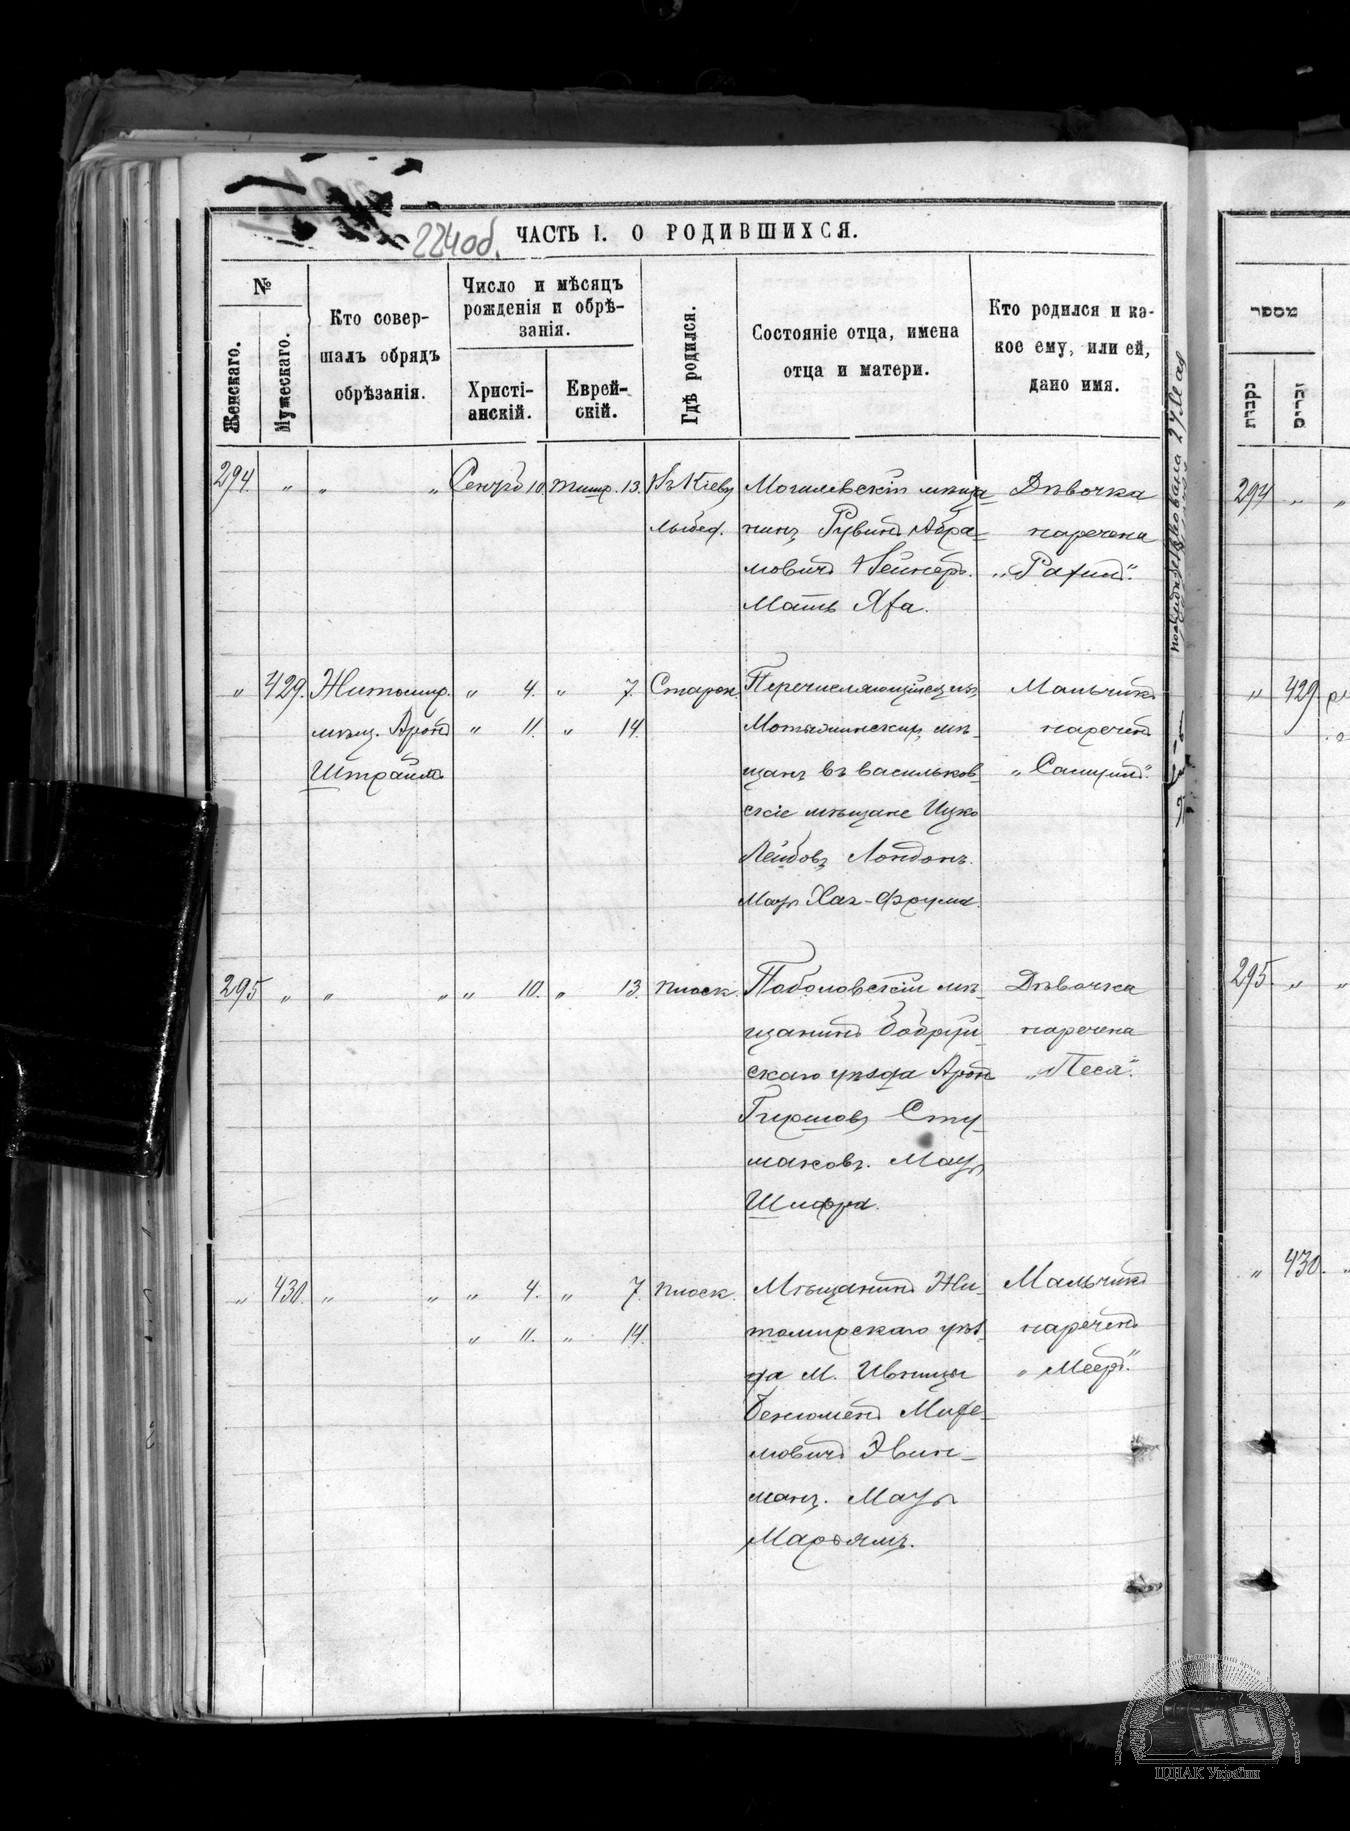 224 об.
ЧАСТЬ I. О РОДИВШИХСЯ.
№
Женскаго.
Мужескаго.
Кто совер-
шалъ обрядъ
обрѣзанія.
Число и мѣсяцъ
рожденія и обрѣ-
занія.
Христі-
анскій.
Еврей-
скій.
Гдѣ родился.
Состояніе отца, имена
отца и матери.
Кто родился и ка-
кое ему, или ей,
дано имя.
294. " " " 10. Тишр. 13. Въ Кіевѣ
Лыбед.
Могилевскій мѣща-
нинъ Рувинъ Абра-
мовичъ
Мать Хая.
Дѣвочка
наречена
" 429. Житомир.
мѣщ. Аронъ
Штраймъ
" 4. " 7. Старок.
" 11. " 14.
Перечисляющійся изъ
мѣ-
щанъ въ васильков-
скіе мѣщане Ицко
Лейбовъ Лондонъ.
Мать Хая-Фрума.
Мальчикъ
нареченъ
295 " " " " 10. " 13. Плоск.
Поболовскій мѣ-
щанинъ Бобруй-
скаго уѣзда Аронъ
Гиршовъ
Мать
Шифра.
Дѣвочка
наречена
„Песя".
" 430. " " " 4. " 7. Плоск.
" 11. " 14.
Мѣщанинъ Жи-
томирскаго уѣз-
да М. Ивницы
Беньоменъ
манъ. Мать
Марьямъ.
Мальчикъ
нареченъ
„Мееръ".
מספר
נקבות
זכרים
294 " "
" 429.
295. " "
" 430. "
ЦДІАК України